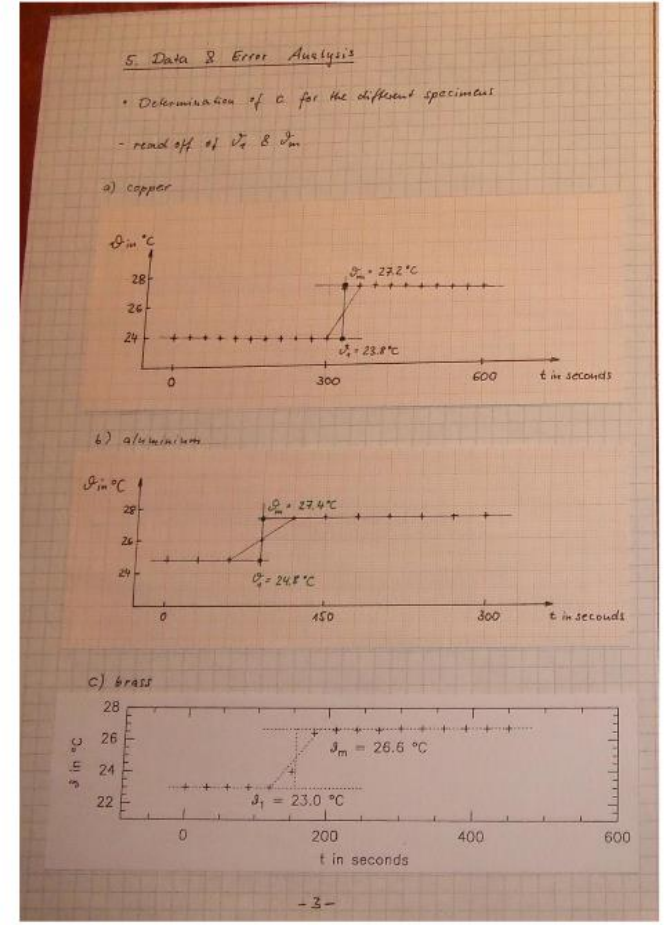 5. Data & Error Analysis
• Determination of c for the different specimens
- read off of ϑ₁ & ϑm
a) copper
ϑ in °C
28
26
24
ϑm = 27.2 °C
ϑ₁ = 23.8 °C
0 300 600 t in seconds
b) aluminium
ϑ in °C
28
26
24
ϑm = 27.4 °C
ϑ₁ = 24.8 °C
0 150 300 t in seconds
c) brass
ϑ in °C
28
26
24
22
ϑm = 26.6 °C
ϑ₁ = 23.0 °C
0 200 400 600
t in seconds
- 3 -